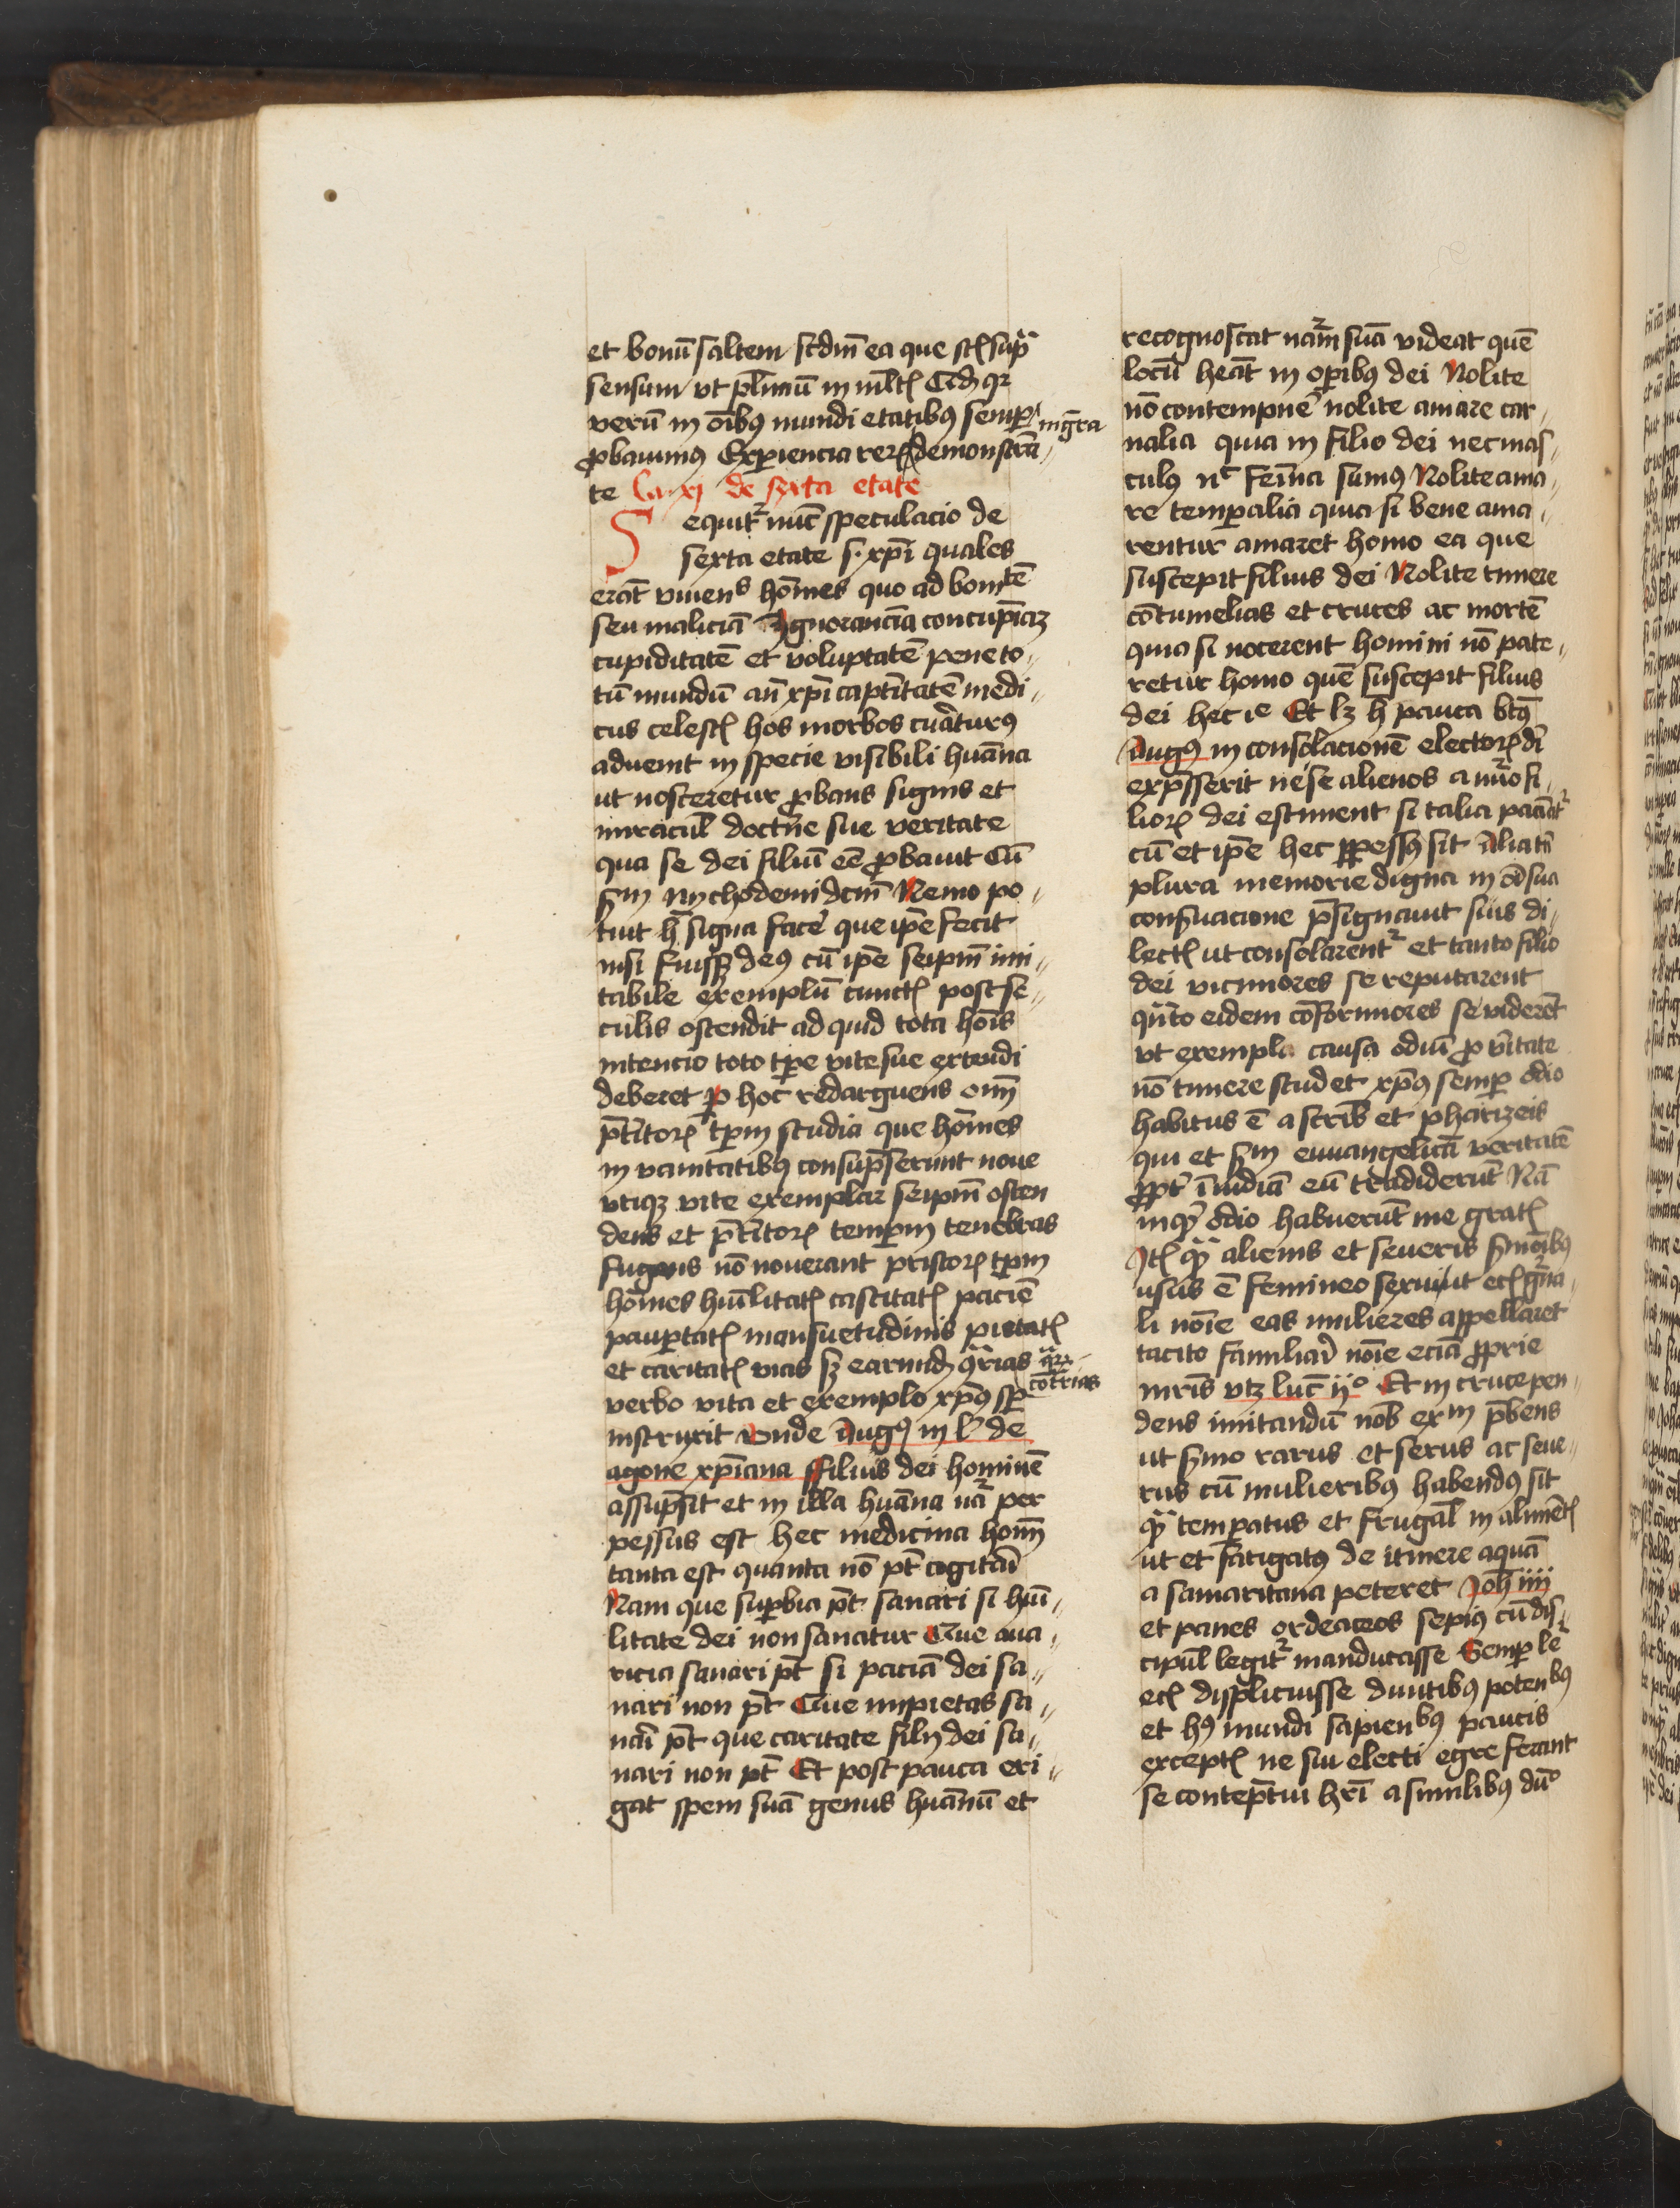 et bonū saltem scdm̄ ea que st̄ sup̄
sensum vt pl̄imū in ml̄tꝭ Cidꝫ qꝛ
verū in oībꝯ mundi etatibꝯ semꝑ in gr̄a
ꝓbauimꝯ Exꝑiencia reꝝ demonstrā⸗
te Ca. xj de sexta etate
Sequitᷣ nūc speculacio de
sexta etate s. xp̄i quales
erāt viuens hōmes quo ad bonitē
seu maliciā Ignoranciā concupīaꝫ
cupiditatē et voluptatē pene to⸗
tū mundū an̄ xp̄i captītatē medi⸗
cus celestꝭ hos morbos curāturꝯ
aduenit in specie visibili huāna
ut nosceretur ꝓbans signis et
miracul̄ doctn̄e sue veritate
qua se dei filiū eē ꝓbauit Cū
sm̄ nychodemi dcm̄ Nemo po⸗
tuit h̄ signa facē que ip̄e fecit
nisi fuissꝫ deꝯ cū ip̄e seip̄m imi⸗
tabile exemplū cunctꝭ post se⸗
culis ostendit ad quid tota hoīs
intencio toto tp̄e vite sue extendi
deberet ꝑ hoc redarguens om̄
p̄titoꝝ tp̄m studia que hōmes
in vanitatibꝯ consūpserunt noue
vtiqꝫ vite exemplar seip̄m osten
dens et p̄titoꝝ temꝑm tenebras
fugans nō nouerant priscoꝝ tp̄m
hōmes huīlitatꝭ castitatꝭ pacien̄
pauꝑtatꝭ mansuetudinis pietatꝭ
et caritatꝭ vias sꝫ earundꝫ q̄rias contrias
verbo vita et exemplo xp̄ꝯ sp̄
instruxit Vnde Augꝯ in lᵒ de
agone xp̄iana ffilius dei hominē
assūpsit et in illa huāna nāᷓ per
pessus est hec medicina hoīm
tanta est quanta nō pt̄ cogitari
Nam que suꝑbia pt̄ sanari si huī⸗
litate dei non sanatur Que aua⸗
ricia sanari pt̄ si paciā dei sa⸗
nari non pt̄ Que impietas sa⸗
nari pt̄ que caritate filij dei sa⸗
nari non pt̄ Et post pauca eri⸗
gat spem suā genus huānū et
recognoscat nāmᷓ suā videat quē
locū heāt in oꝑibꝯ dei Nolite
nō contempnē nolite amare car⸗
nalia quia in filio dei nec mas⸗
culꝯ nᶜ femīna sumꝯ Nolite ama⸗
re temꝑalia quia si bene ama⸗
rentur amaret homo ea que
suscepit filius dei Nolite timere
cōtumelias et cruces ac mortē
quia si nocerent homini nō pate⸗
retur homo quē suscepit filius
dei hec ie Et lꝫ h̄ pauca bt̄ꝯ
Augꝯ in consolacionē electoꝝ di
expr̄sserit ne se alienos a nūo fi⸗
lioꝝ dei estiment si talia paciātᷣ
cū et ip̄e hec ꝑpessꝯ sit Alia tn̄
plura memorie digna in oī sua
conſuacione p̄signauit suis di⸗
lectꝭ ut consolarentᷣ et tanto filio
dei viciniores se reputarent
qn̄to eidem cōformiores se viderēt
vt exempla causa odiū ꝓ v̄itate
nō timere studet xp̄ꝯ semꝑ odio
habitus ē a scribꝭ et pharizeis
qui et sm̄ euuangelicā veritatē
ꝓpt̄ īuidiā eū tradiderūt Nā
inqͥt odio habuerūt me gratꝭ
Itꝭ qͣ alienis et seueris ſmōibꝯ
usus ē femineo sexui ut etꝭ gn̄a⸗
li noīe eas mulieres appellaret
tacito familiari noīe eciā ꝓprie
mr̄is vtꝫ luc̄ ijᵒ Et in cruce pen⸗
dens imitandū nob exᵐ p̄bens
ut ſmo rarus et serus ac seue⸗
rus cū mulieribꝯ habendꝯ sit
qͣ temꝑatus et frugal̄ in alimētꝭ
ut et fatigatꝯ de itinere aquā
a samaritana peteret Joh̄ iiij
et panes ordeaceos sepiꝯ cū dis⸗
cipul̄ legitᷣ manducasse Semꝑ le
etꝭ displicuisse diuitibꝯ potenbꝯ
et hꝯ mundi sapienbꝯ paucis
exceptꝭ ne sui electi egre ferant
se contēptui hr̄i a similibꝯ dū